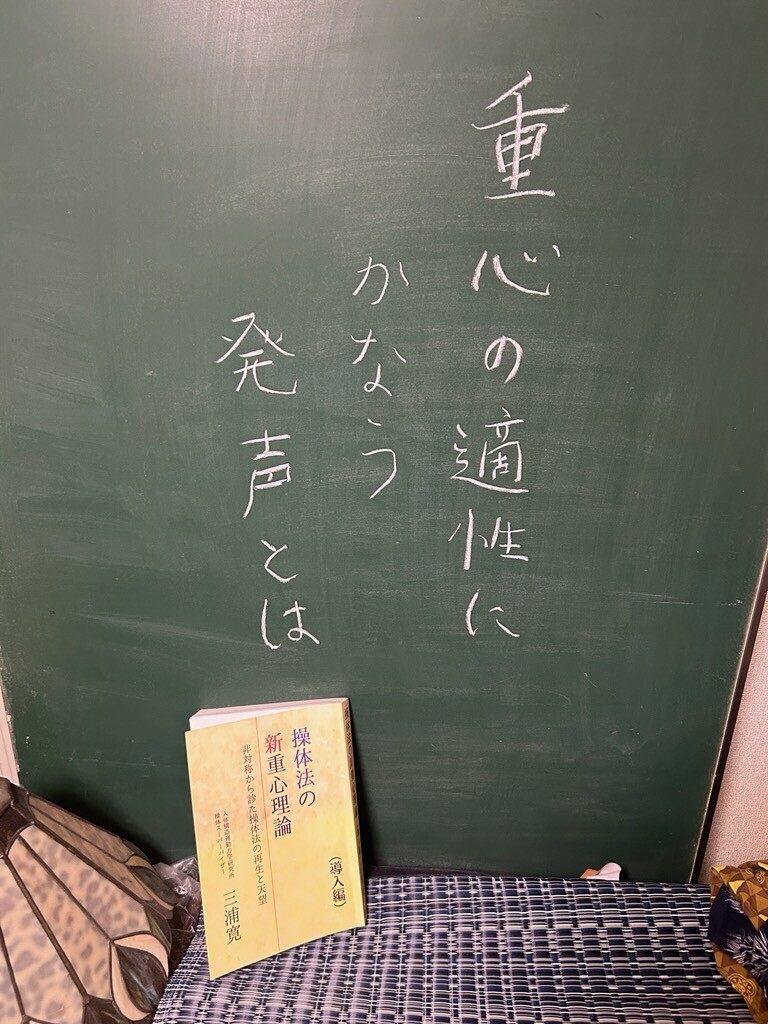 重心の適性に
かなう
発声とは
操体法の
新重心理論
(導入編)
非対称から診た操体法の再生と天望
人体構造運動力学研究所
操体スーパーバイザー
三浦寛